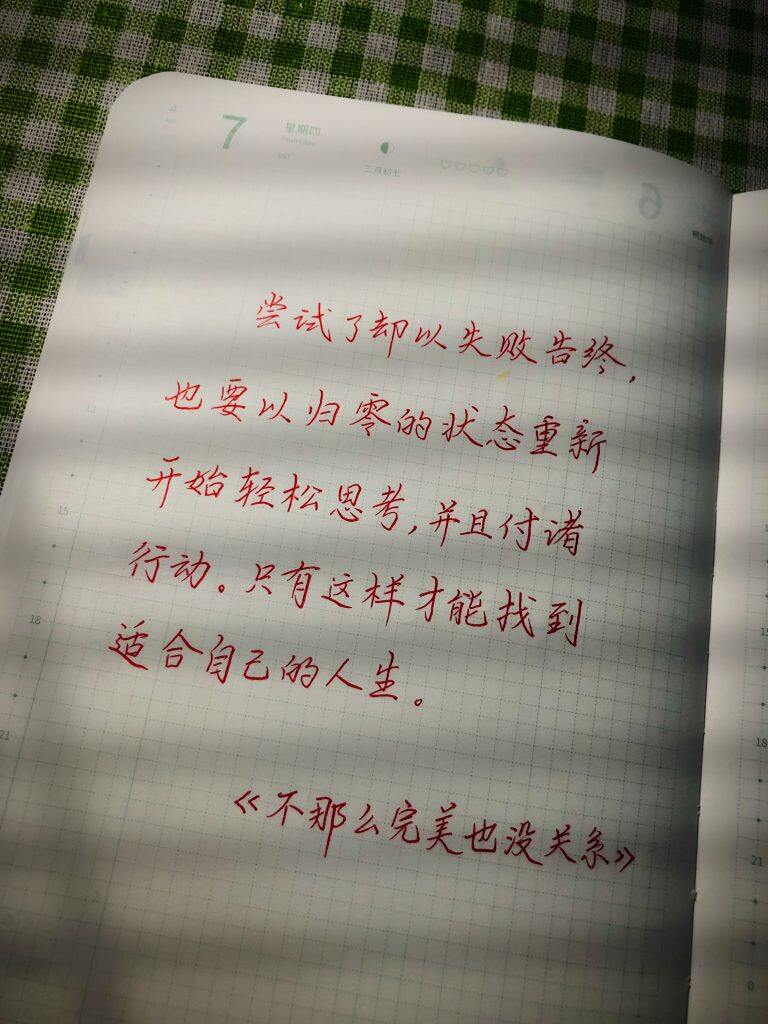 4
7
星期四
Thursday
三月初七
6
尝试了却以失败告终,
也要以归零的状态重新
开始轻松思考,并且付诸
行动。只有这样才能找到
适合自己的人生。
《不那么完美也没关系》
12
15
18
21
15
18
21
0